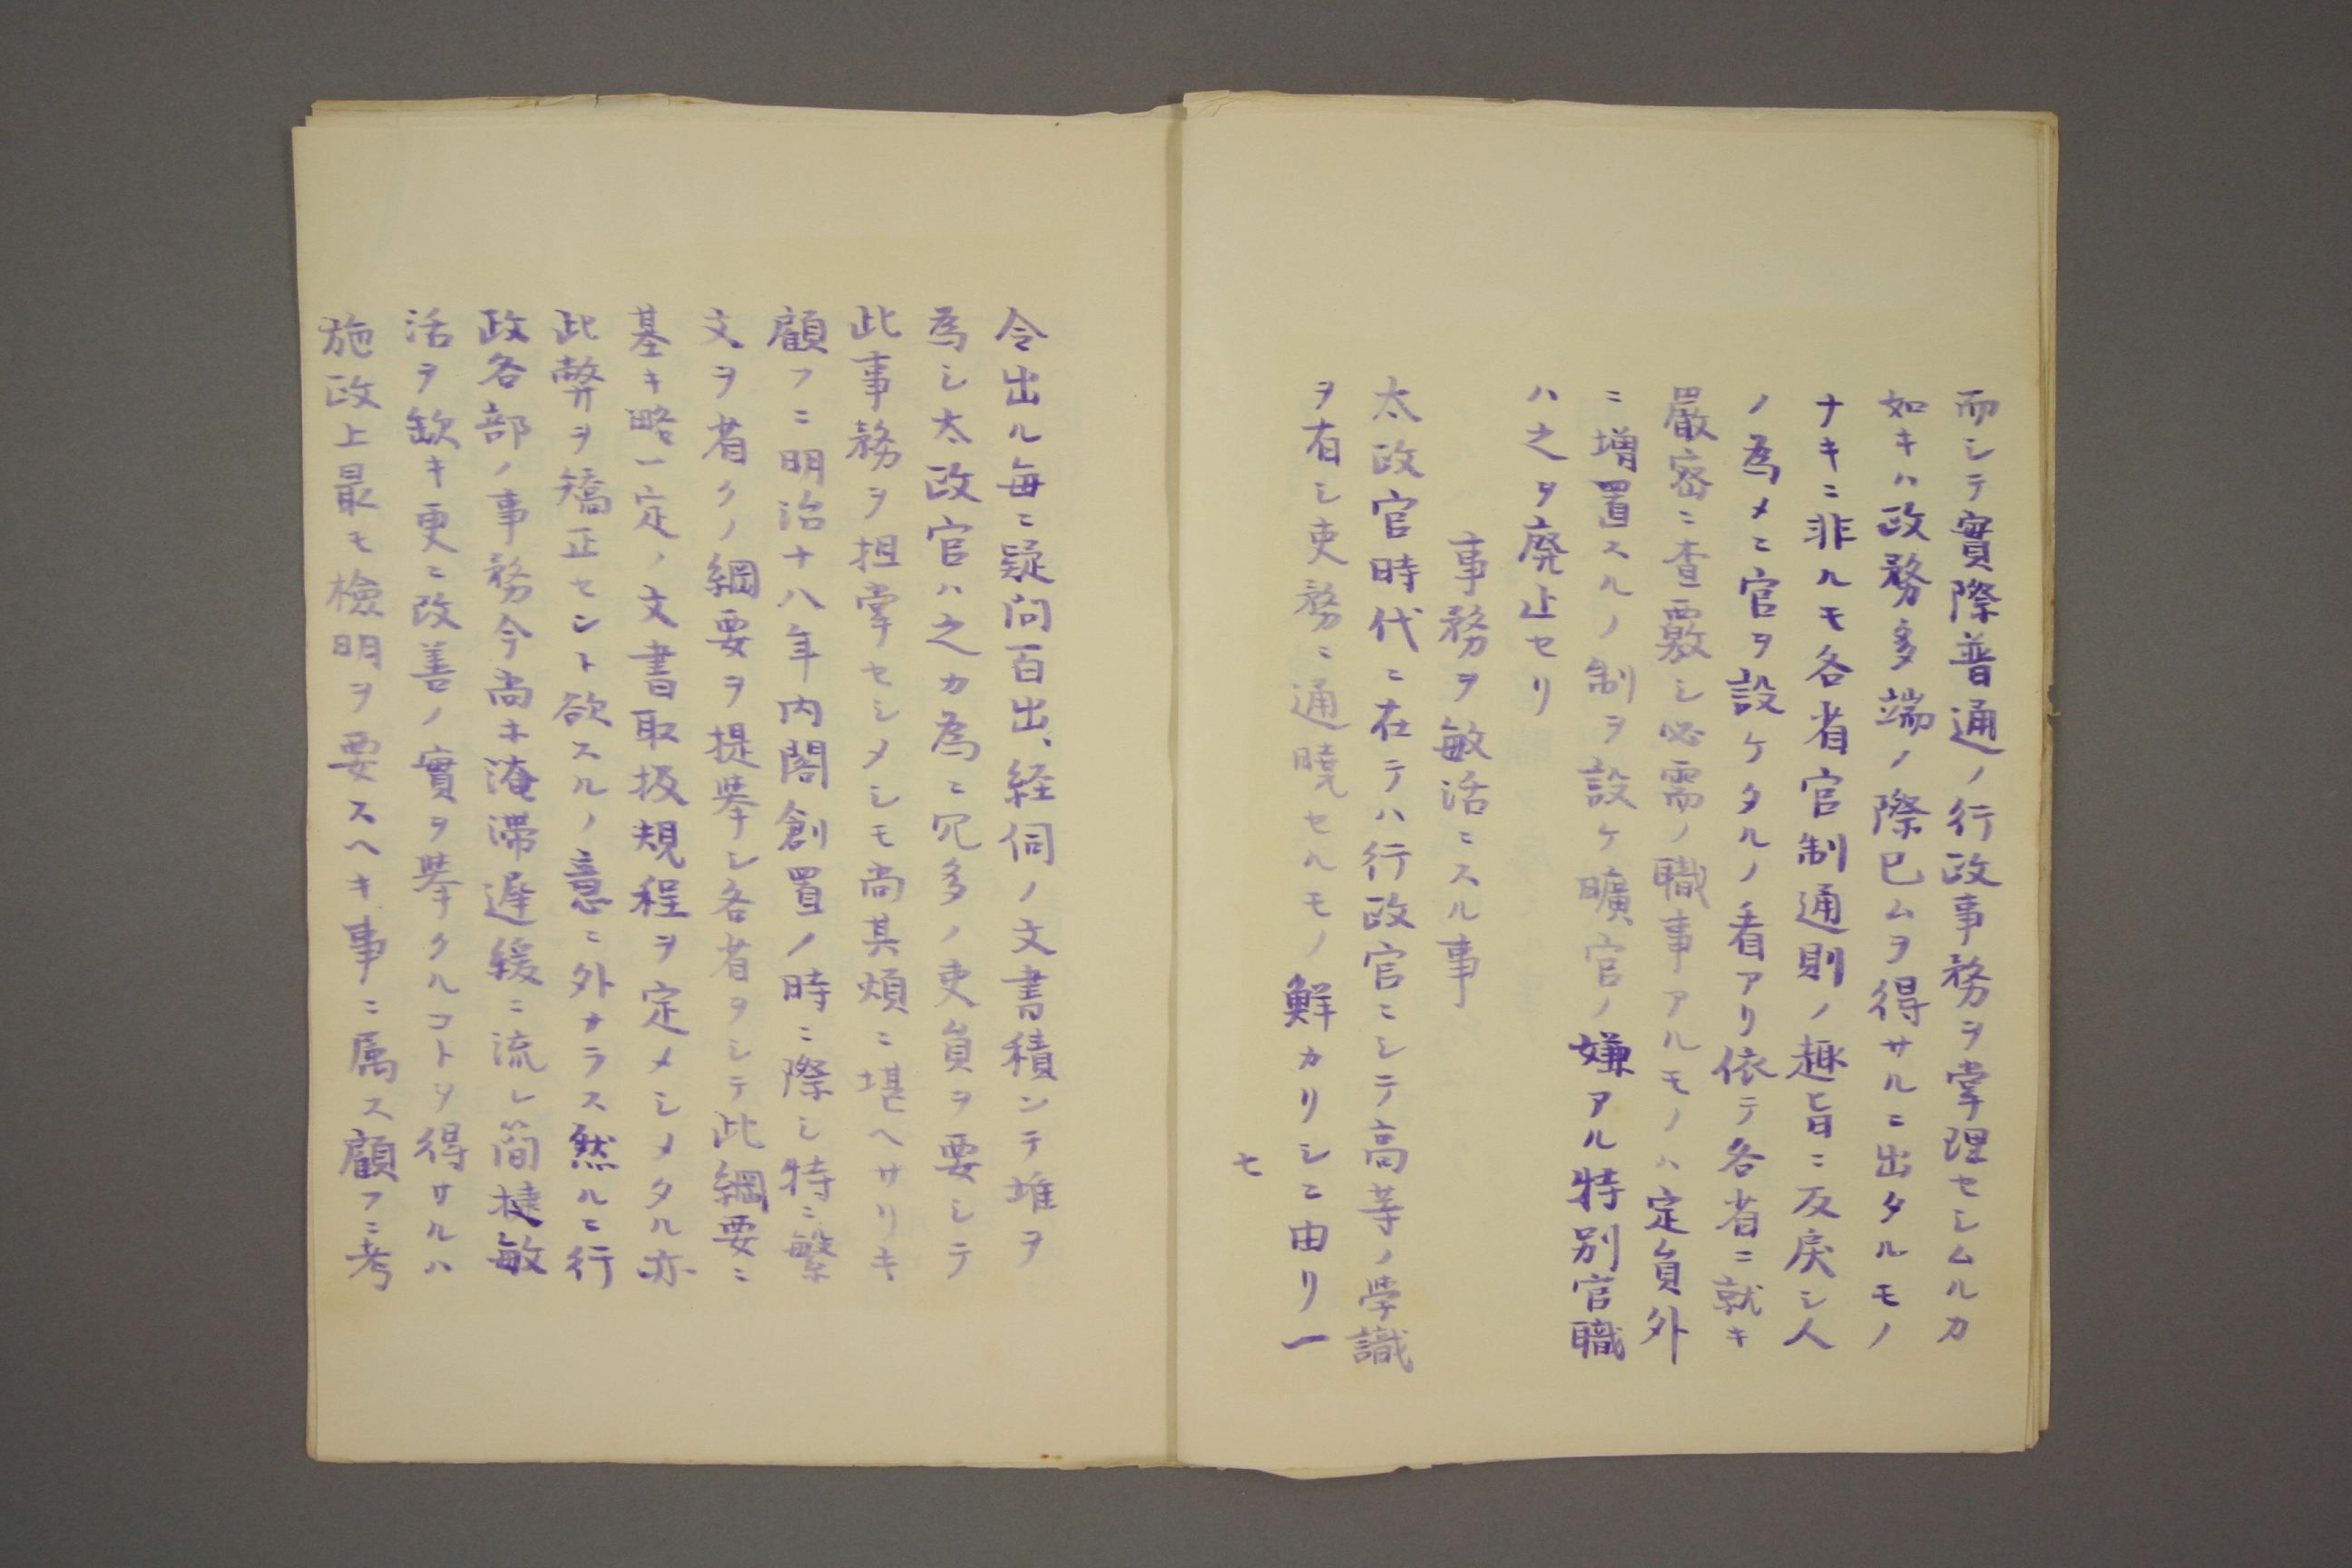 而シテ實際普通ノ行政事務ヲ掌理セシムルカ
如キハ政務多端ノ際已ムヲ得サルニ出タルモノ
ナキニ非ルモ各省官制通則ノ趣旨ニ反戻シ人
ノ為メニ官ヲ設ケタルノ看アリ依テ各省ニ就キ
嚴密ニ査覈シ必需ノ職事アルモノハ定員外
ニ増置スルノ制ヲ設ケ曠官ノ嫌アル特別官職
ハ之ヲ廃止セリ
事務ヲ敏活ニスル事
太政官時代ニ在テハ行政官ニシテ高等ノ學識
ヲ有シ吏務ニ通曉セルモノ鮮カリシニ由リ一
七
令出ル毎ニ疑问百出、経伺ノ文書積ンテ堆ヲ
為シ太政官ハ之カ為ニ冗多ノ吏員ヲ要シテ
此事務ヲ担掌セシメシモ尚其煩ニ堪ヘサリキ
顧フニ明治十八年内閣創置ノ時ニ際シ特ニ繁
文ヲ省クノ綱要ヲ提挙シ各省ヲシテ此綱要ニ
基キ略一定ノ文書取扱規程ヲ定メシメタル亦
此弊ヲ矯正セント欲スルノ意ニ外ナラス然ルニ行
政各部ノ事務今尚ホ淹滞遅緩ニ流レ簡捷敏
活ヲ缺キ更ニ改善ノ實ヲ挙クルコトヲ得サルハ
施政上最モ檢明ヲ要スヘキ事ニ属ス顧フニ考